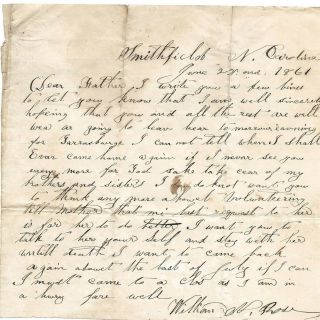 Smithfield N. Carolina
June 22nd, 1861
Dear Father I wrote you a few lines
to let you know that I am well sincerely
hopeing that you and all the rest are well
wea ar going to leav hear to morrow evening
for I can not tell where I shall
Evar came home again if I never see you
eney more for God sake take cear of my
brothers and sisters I do not want you
to think eney more abowt Volunteering
tell mother that mi last request to her
is for her to do I want you to
talk to her your self and stay with her
untill death I want to come back
again abowt the last of if I can
I must came to a clos as I am in
a hurry fare well
William N. Rose